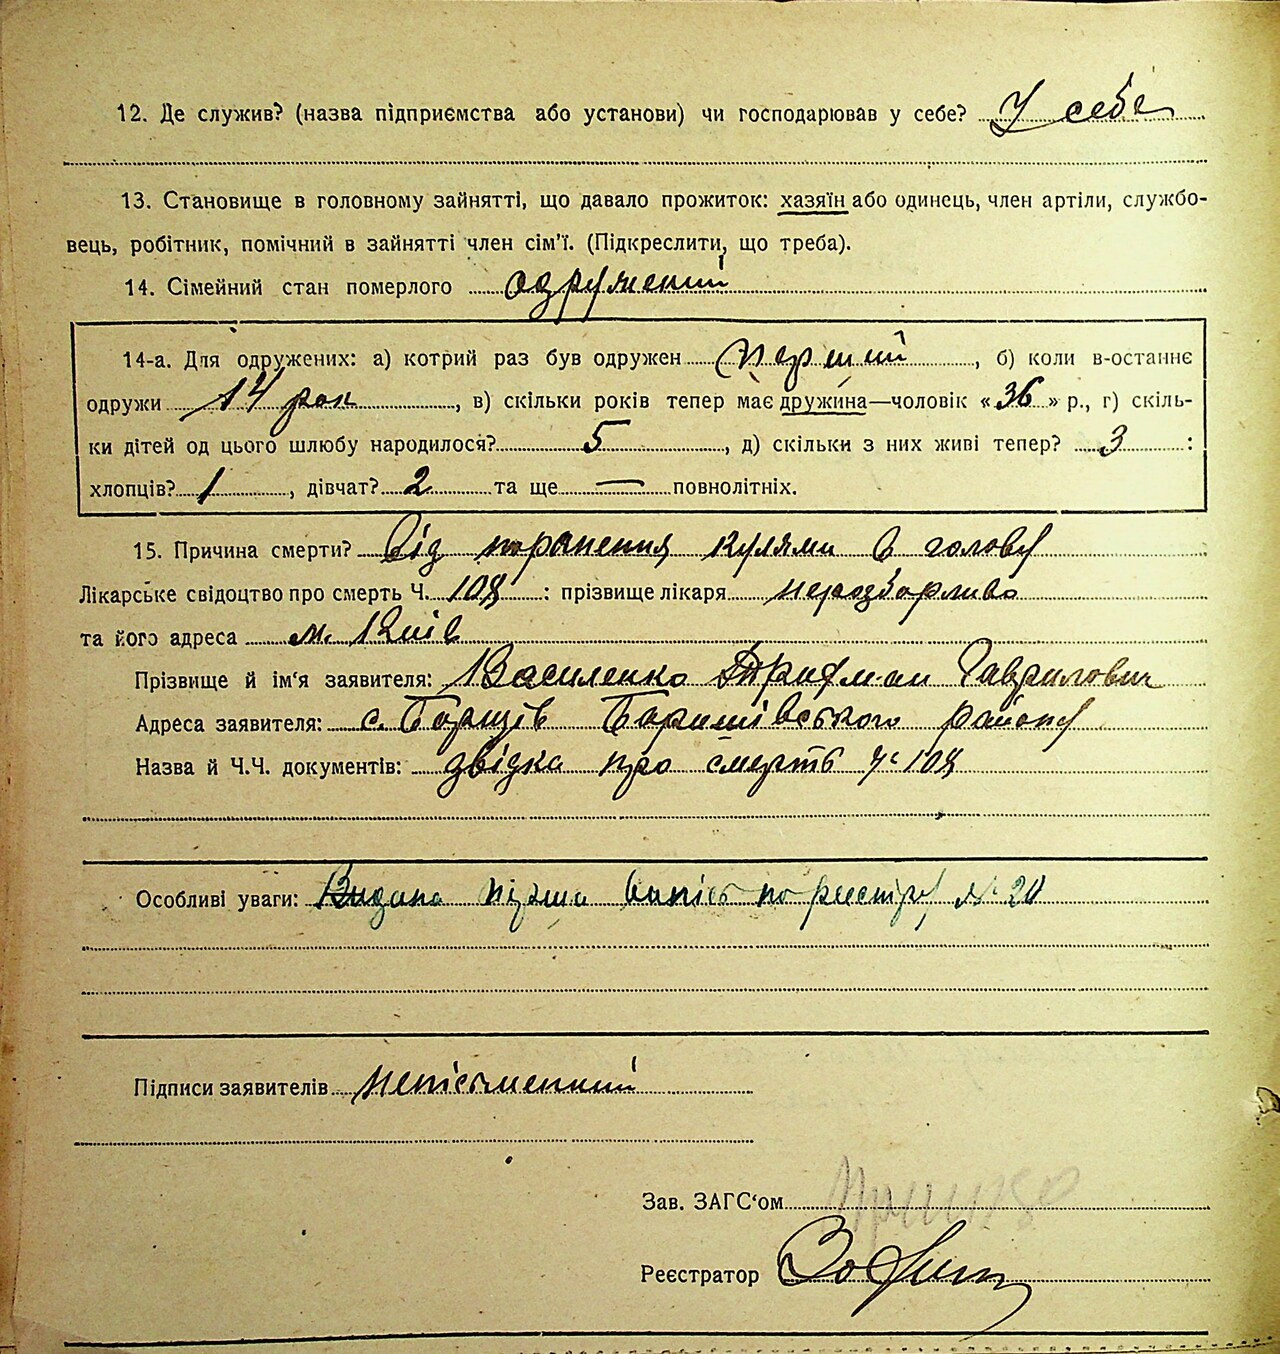 12. Де служив? (назва підприємства або установи) чи господарював у себе? У себе
13. Становище в головному зайнятті, що давало прожиток: хазяїн або одинець, член артілі, службо-
вець, робітник, помічний в зайнятті член сім'ї. (Підкреслити, що треба).
14. Сімейний стан померлого одружений
14-а. Для одружених: а) котрий раз був одружен перший, б) коли в-останнє
одружи 14 рок, в) скільки років тепер має дружина—чоловік «36» р., г) скіль-
ки дітей од цього шлюбу народилося? 5, д) скільки з них живі тепер? 3 :
хлопців? 1, дівчат? 2 та ще — повнолітніх.
15. Причина смерти? Від поранення кулями в голову
Лікарське свідоцтво про смерть Ч. 108 : прізвище лікаря неразборливо
та його адреса м. Київ
Прізвище й ім'я заявителя: Василенко Трифман Гаврилович
Адреса заявителя: с. Борщів Баришівського району
Назва й Ч.Ч. документів: двідка про смерть № 108
Особливі уваги: Видана перша випись по реєстру № 20
Підписи заявителів неписьменний
Зав. ЗАГС'ом
Реєстратор